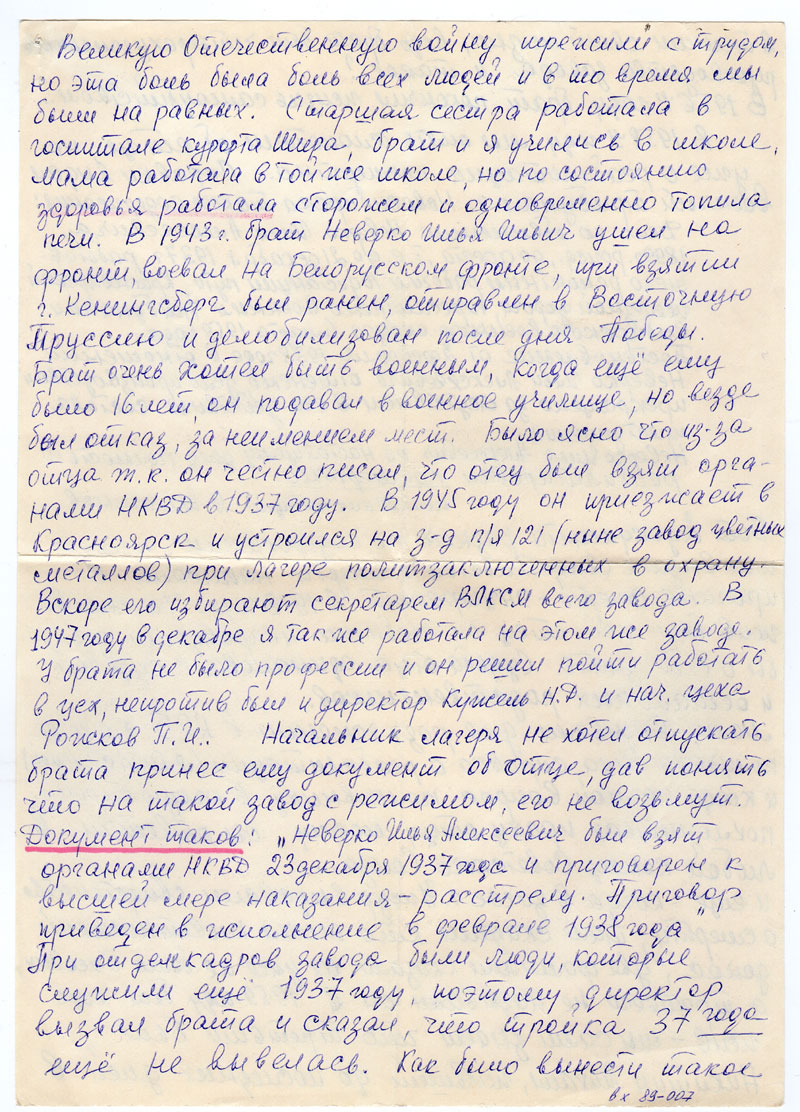 Великую Отечественную войну прежили с трудом,
но эта боль была боль всех людей и в то время мы
были на равных. Старшая сестра работала в
госпитале курорта Шира, брат и я учились в школе,
мама работала в той же школе, но по состоянию
здоровья работала сторожем и одновременно топила
печи. В 1943 г. брат Неверко Илья Ильич ушел на
фронт, воевал на Белорусском фронте, при взятии
г. Кенингсберг был ранен, отправлен в Восточную
Пруссию и демобилизован после дня Победы.
Брат очень хотел быть военным, когда ещё ему
было 16 лет, он подавал в военное училище, но везде
был отказ, за неимением мест. Было ясно что из-за
отца т.к. он честно писал, что отец был взят орга-
нами НКВД в 1937 году. В 1945 году он приезжает в
Красноярск и устроился на з-д п/я 121 (ныне завод цветных
металлов) при лагере политзаключенных в охрану.
Вскоре его избирают секретарем ВЛКСМ всего завода. В
1947 году в декабре я так же работала на этом же заводе.
У брата не было профессии и он решил пойти работать
в цех, непротив был и директор Кужель Н.Д. и нач. цеха
Рожков П.И.. Начальник лагеря не хотел отпускать
брата принес ему документ об отце, дав понять
что на такой завод с режимом, его не возьмут.
Документ таков: „Неверко Илья Алексеевич был взят
органами НКВД 23 декабря 1937 года и приговорен к
высшей мере наказания - расстрелу. Приговор
приведен в исполнение в феврале 1938 года"
При отделе кадров завода были люди, которые
служили ещё 1937 году, поэтому директор
вызвал брата и сказал, что тройка 37 года
ещё не вывелась. Как было вынести такое
вх 89-007